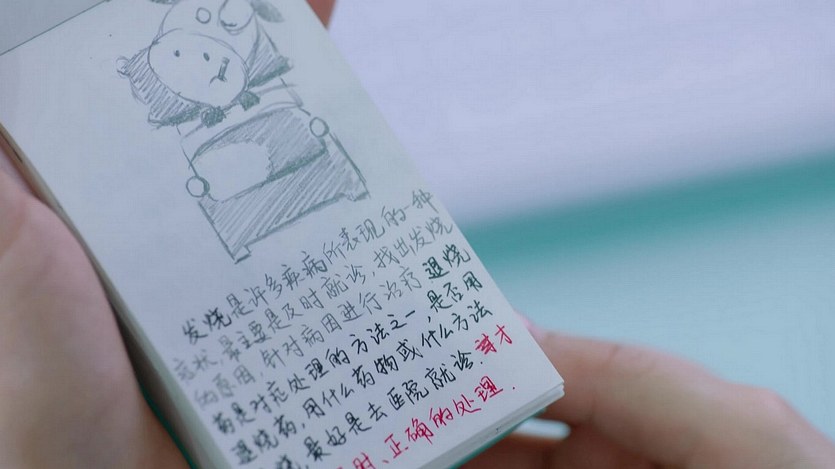 发烧是许多疾病所表现的一种
症状,最主要是及时就诊,找出发烧
的原因,针对病因进行治疗 退烧
药是对症处理的方法之一,是否用
退烧药,用什么药物或什么方法
烧,最好是去医院就诊.
时、正确的处理.